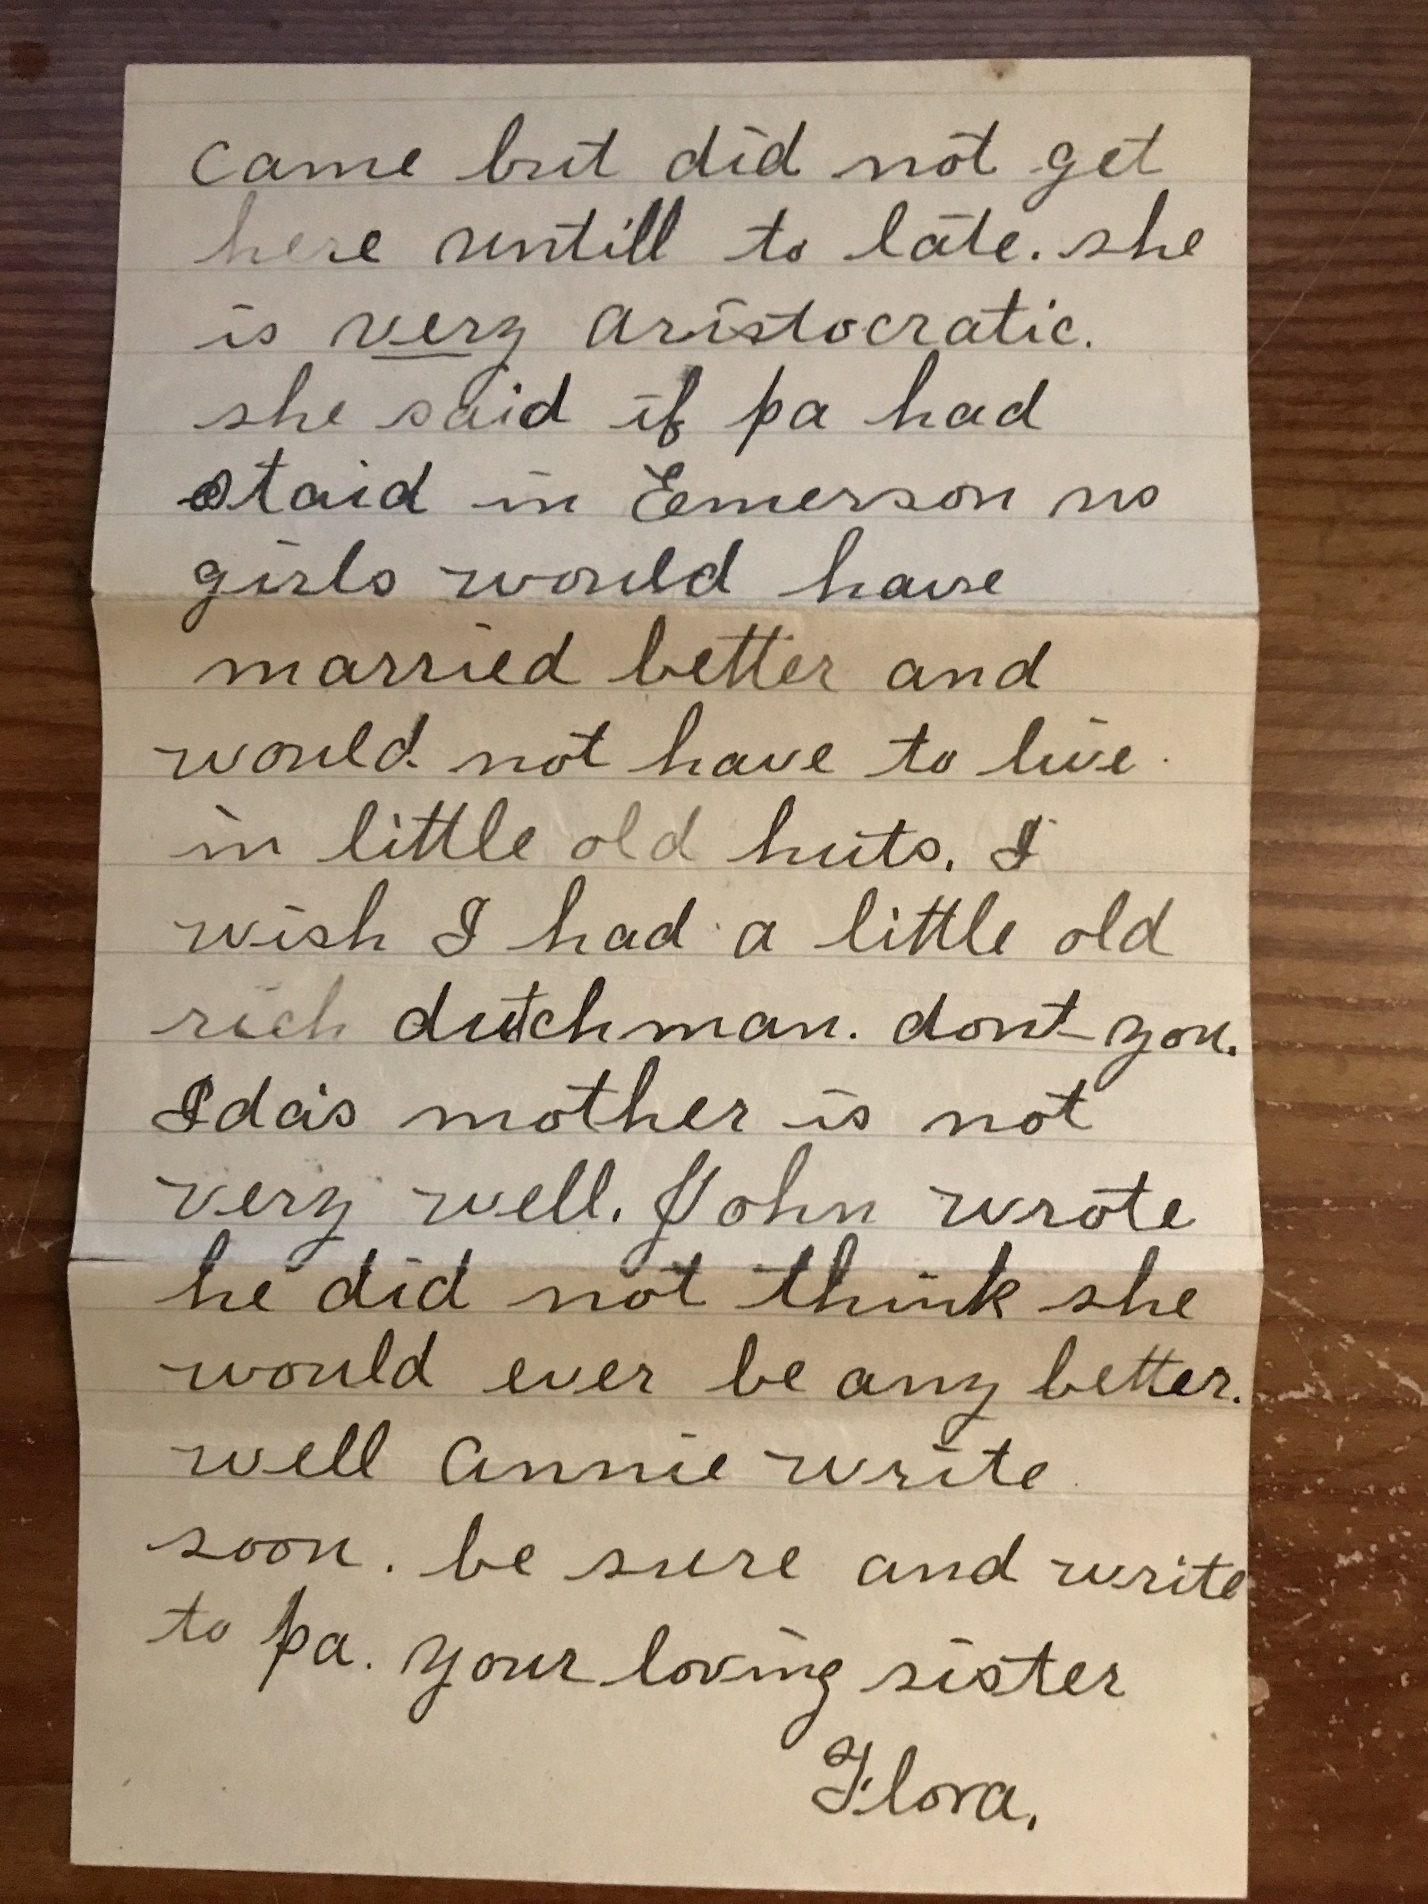 came but did not get
here untill to late. she
is very aristocratic.
she said if pa had
staid in Emerson us
girls would have
married better and
would not have to live
in little old huts. I
wish I had a little old
rich dutchman. dont you.
Ida's mother is not
very well. John wrote
he did not think she
would ever be any better.
well annie write
soon. be sure and write
to pa. your loving sister
Flora.